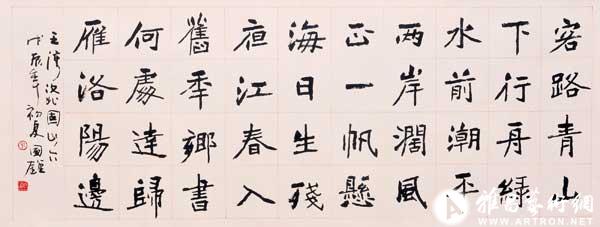 客路青山
下行舟綠
水前潮平
两岸濶風
正一帆懸
海日生殘
夜江春入
舊秊鄉書
何處達歸
雁洛陽邊
王灣次北固山下
戊辰年初夏國
雅昌藝術網
WWW.ARTRON.NET